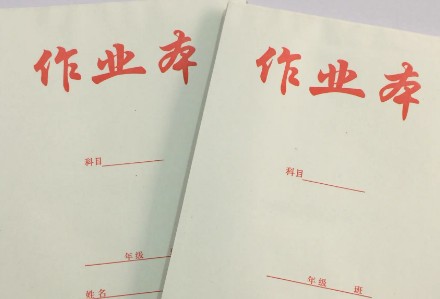 作业本
科目
年级
姓名
作业本
科目
年级 班